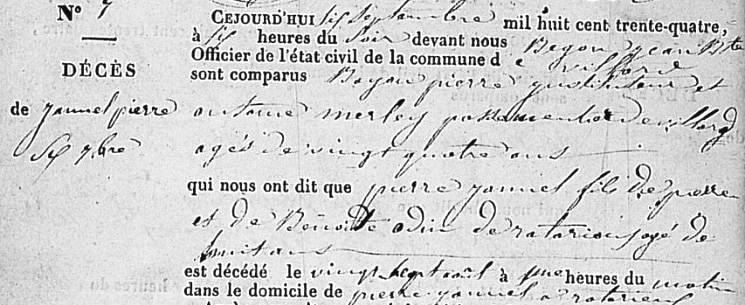 N° 7
CEJOURD'HUI six septembre mil huit cent trente-quatre,
à six heures du soir devant nous Begon jean Bte
Officier de l'état civil de la commune de villard
DÉCÈS
sont comparus Bayon pierre instituteur et
de januel pierre
antoine merley passementier de villard
Six 7bre
agés de vingt quatre ans
qui nous ont dit que pierre januel fils de pierre
et de Benoite odin de ratarieux agé de
huit ans
est décédé le vingt sept août à heures du matin
dans le domicile de pierre januel a ratarieux